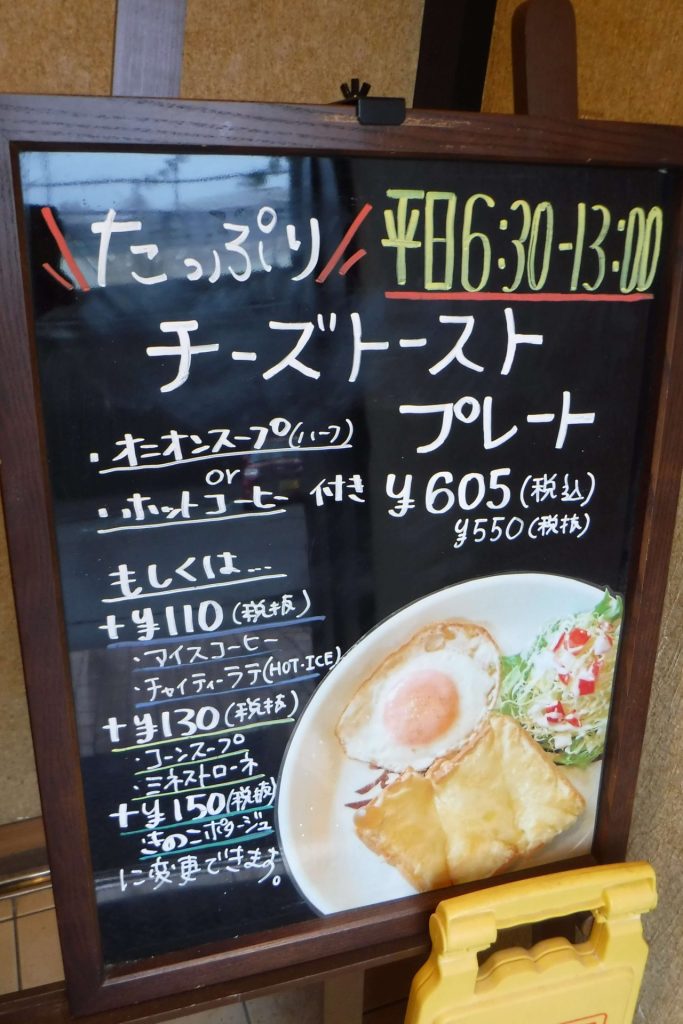 たっぷり
平日6:30-13:00
チーズトースト
プレート
・オニオンスープ(ハーフ)
or
・ホットコーヒー 付き ¥605(税込)
¥550(税抜)
もしくは…
+¥110(税抜)
・アイスコーヒー
・チャイティーラテ(HOT・ICE)
+¥130(税抜)
・コーンスープ
・ミネストローネ
+¥150(税抜)
きのこポタージュ
に変更できます。